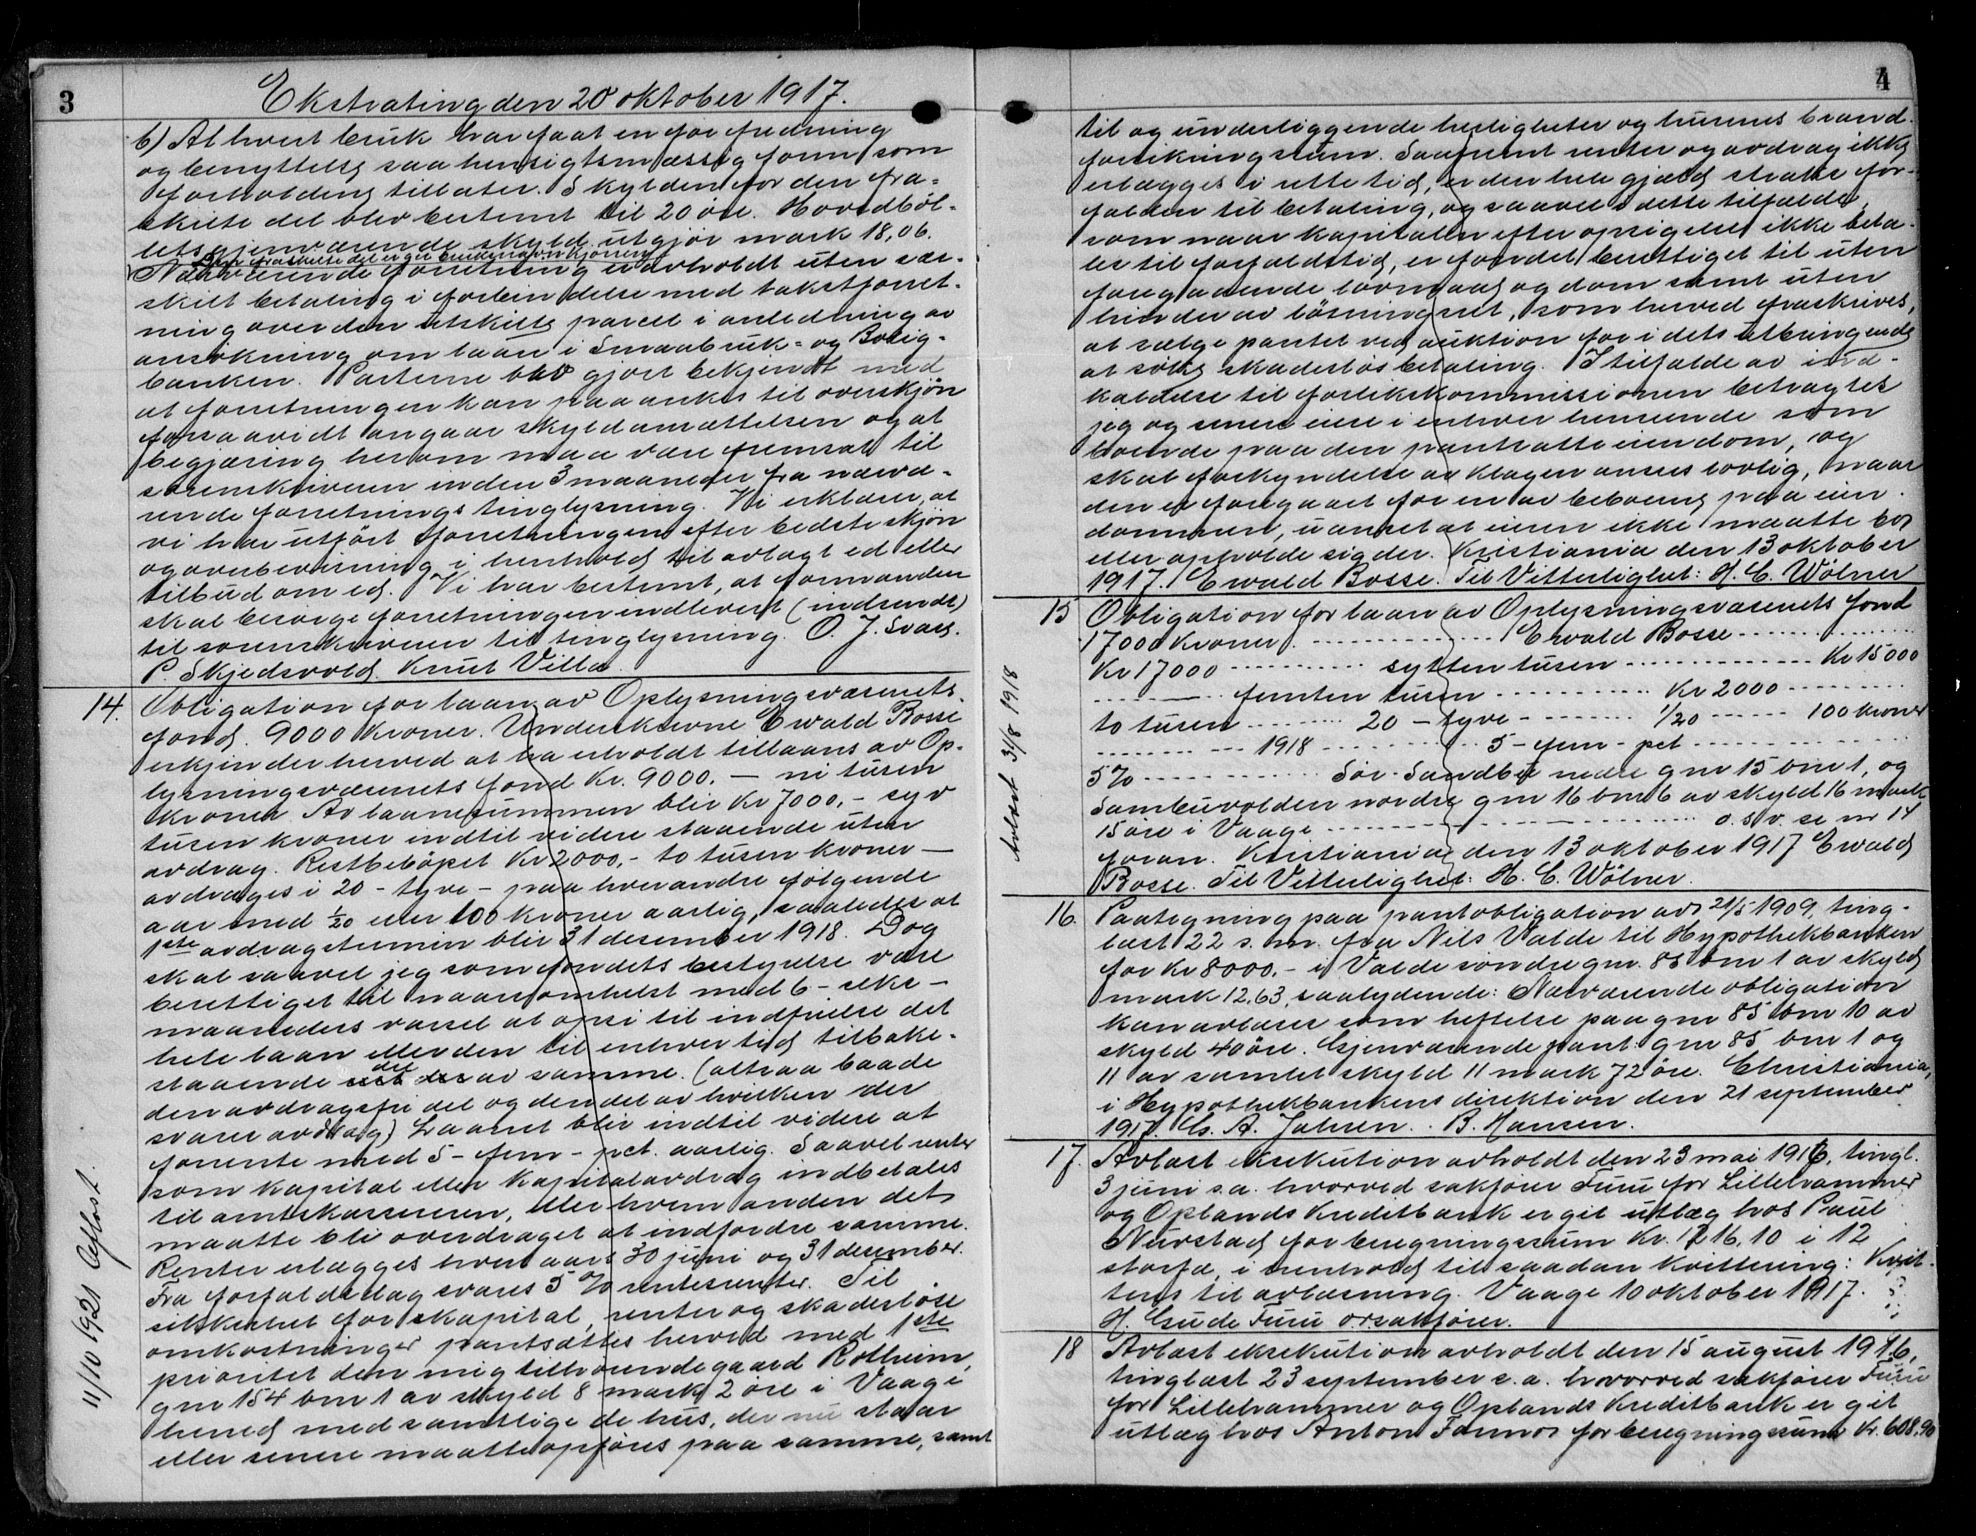 3
Ekstrating den 20 oktober 1917.
6) At hvert bruk har faat en for fredning
og benyttelse saa hensigtsmæssig form som
forholdene tillater. Skylden for den fra-
skilte del blev bestemt til 20 øre. Hovedbøl-
lets gjenværende skyld utgjør mark 18,06.
Den fraskilte del er git bruksnavn
Nærværende forretning er avholdt uten sær-
skilt betaling i forbindelse med takstforret-
ning over den utskilte parcel i anledning av
ansøkning om laan i Smaabruk- og Bolig-
banken. Parterne blev gjort bekjendt med
at forretningen kan paaankes til overskjøn
forsaavidt angaar skyldansættelsen og at
begjæring herom maa være fremsat til
sorenskriveren inden 3 maaneder fra nærvæ-
rende forretnings tinglysning. Vi erklærer, at
vi har utført forretningen efter bedste skjøn
og overbevisning i henhold til avlagt ed eller
tilbud om ed. Vi har bestemt, at formanden
skal besørge forretningen indlevert (indsendt)
til sorenskriveren til tinglysning. O. J. Svare.
P. Skjedsvold. Knut Villa.
14. Obligation for laan av Oplysningsvæsenets
fond. 9000 kroner. Underskrevne Ewald Bosse
erkjender herved at ha erholdt tillaans av Op-
lysningsvæsenets fond Kr. 9000.- ni tusen
kroner. Av laanesummen blir Kr 7000.- syv
tusen kroner indtil videre staaende uten
avdrag. Restbeløpet Kr 2000.- to tusen kroner -
avdrages i 20 - tyve - paa hverandre følgende
aar med 1/20 eller 100 kroner aarlig, saaledes at
1ste avdragstermin blir 31 desember 1918. Dog
skal saavel jeg som fondets bestyrelse være
berettiget til naarsomhelst med 6 - seks -
maaneders varsel at opsi til indfrielse det
hele laan eller den til enhver tid tilbake-
staaende del av samme. (altsaa baade
den avdragsfri del og den del av hvilken der
svares avdrag) Laanet blir indtil videre at
forrente med 5 - fem - pct. aarlig. Saavel renter
som kapital eller kapitalavdrag indbetales
til amtskassereren, eller hvem anden det
maatte bli overdraget at indfordre samme.
Renter erlægges hvert aars 30 juni og 31 desember.
Fra forfaldsdag svares 5 % rentesrenter. Til
sikkerhet for skapital, renter og skadesløse
omkostninger pantsættes herved med 1ste
prioritet den mig tilhørende gaard Rotheim,
gnr 154 bnr 1 av skyld 8 mark 2 øre i Vaage
herred med samtlige de hus, der nu staar
eller senere maatte opføres paa samme, samt
11/10 1921 Avløst.
4
til og underliggende herligheter og husenes brand-
forsikringssum. Saafremt renter og avdrag ikke
erlægges i rette tid, er den hele gjæld straks for-
falden til betaling, og saavel i dette tilfælde,
som naar kapitalen efter opsigelse ikke beta-
les til forfaldstid, er fondet berettiget til uten
foregaaende lovmaal og dom samt uten
hinder av løsningsret, som herved fraskrives,
at sælge pantet ved auktion for i dets utbringende
at søke skadesløs betaling. I tilfælde av ind-
kaldelse til forlikskommissionen betragtes
jeg og senere eiere i enhver henseende som
boende paa den pantsatte eiendom, og
skal forkyndelse av klagen ansees lovlig, naar
den er foregaaet for en av beboerne paa eien-
dommen, uanset at eieren ikke maatte bo
eller opholde sig der. Kristiania den 13 oktober
1917. Ewald Bosse. Til Vitterlighet: H. C. Wølner
15 Obligation for laan av Oplysningsvæsenets fond
17000 kroner. - - - Ewald Bosse - - -
Kr 17000 - - - sytten tusen - - - Kr 15000
- - - femten tusen - - - Kr 2000 - - -
to tusen - - - 20 - tyve - - - 1/20 - - - 100 kroner
- - - 1918 - - - 5 - fem - pct - - -
5% - - - Sør-Sandbu nedre gnr 15 bnr 1, og
Sambuvolden nordre gnr 16 bnr 6 av skyld 16 mark
15 øre i Vaage - - - o. s. v. se nr 14
foran. Kristiania den 13 oktober 1917 Ewald
Bosse. Til Vitterlighet: H. C. Wølner.
avløst 31/8 1918
16. Paategning paa pantobligation av 21/5 1909, ting-
læst 22 s. m. fra Nils Valde til Hypothekbanken
for Kr 8000.- i Valde søndre gnr. 85 bnr 1 av skyld
mark 12.63, saalydende: Nærværende obligation
kan avlæses som heftelse paa gnr 85 bnr 10 av
skyld 40 øre. Gjenværende pant: gnr 85 bnr 1 og
11 av samlet skyld 11 mark 72 øre. Christiania,
i Hypothekbankens direktion den 21 september
1917. G. A. Jahren. B. Hansen.
17. Avlæst eksekution avholdt den 23 mai 1916, tingl.
3 juni s. a. hvorved sakfører Furu for Lillehammer
og Oplands Kreditbank er git utlæg hos Paul
Nurstad for beregningssum Kr. 1216.10 i 12
storfæ, i henhold til saadan kvittering: Kvit-
teres til avlæsning. Vaage 10 oktober 1917.
H. Gude Furu o.r.sakfører.
18 Avlæst eksekution avholdt den 15 august 1916,
tinglæst 23 september s. a. hvorved sakfører Furu
for Lillehammer og Oplands Kreditbank er git
utlæg hos Anton for beregningssum Kr. 608.90